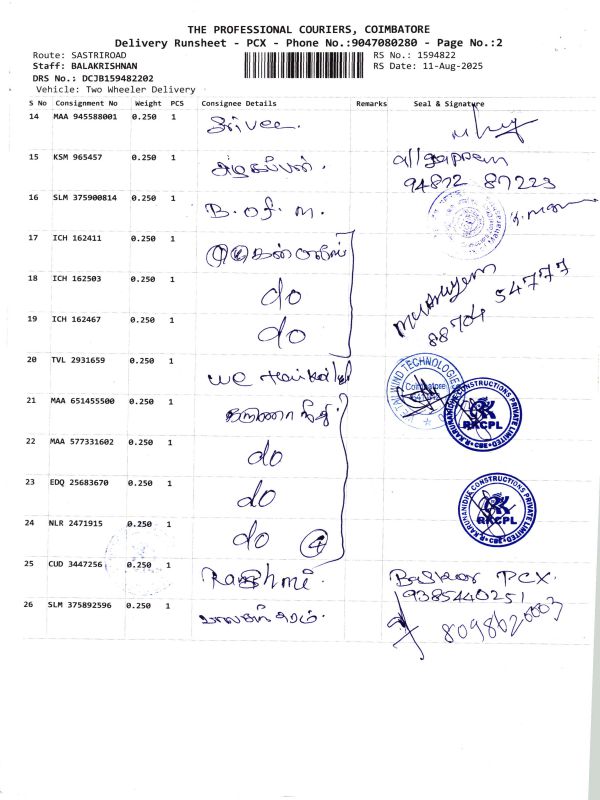 THE PROFESSIONAL COURIERS, COIMBATORE
Delivery Runsheet - PCX - Phone No.:9047080280 - Page No.:2
Route: SASTRIROAD
RS No.: 1594822
Staff: BALAKRISHNAN
RS Date: 11-Aug-2025
DRS No.: DCJB159482202
Vehicle: Two Wheeler Delivery
S No Consignment No Weight PCS Consignee Details Remarks Seal & Signature
14 MAA 945588001 0.250 1 Srivee.
15 KSM 965457 0.250 1
94872 87223
16 SLM 375900814 0.250 1 B.of.m.
17 ICH 162411 0.250 1
18 ICH 162503 0.250 1 do
88704 54777
19 ICH 162467 0.250 1 do
20 TVL 2931659 0.250 1 we
TAILWIND TECHNOLOGIES
Coimbatore
21 MAA 651455500 0.250 1
R.KARUNANIDHI CONSTRUCTIONS PRIVATE LIMITED
RKCPL
CBE
22 MAA 577331602 0.250 1 do
23 EDQ 25683670 0.250 1 do
R.KARUNANIDHI CONSTRUCTIONS PRIVATE LIMITED
RKCPL
CBE
24 NLR 2471915 0.250 1 do 4
25 CUD 3447256 0.250 1 Baskar PCX
9385440251
26 SLM 375892596 0.250 1
8098620003